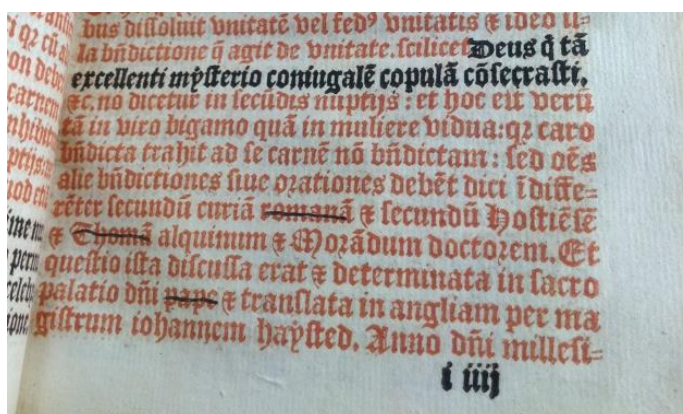 bus dissoluit vnitatē vel fedꝰ vnitatis ⁊ ideo il⸗
la bñdictione q̄ agit de vnitate. scilicet Deus q̄ tā
excellenti mysterio coniugalē copulā cōsecrasti.
⁊c. nō dicetur in secūdis nuptijs : et hoc est verū
tā in viro bigamo quā in muliere vidua: qꝛ caro
bñdicta trahit ad se carnē nō bñdictam : sed oēs
alie bñdictiones siue orationes debēt dici īdiffe⸗
rēter secundū curiā romanā ⁊ secundū Hostiēsē
⁊ Thomā alquinum ⁊ Morādum doctorem. Et
questio ista discussa erat ⁊ determinata in sacro
palatio dñi pape ⁊ translata in angliam per ma
gistrum iohannem haysted. Anno dñi millesi⸗
i iiij